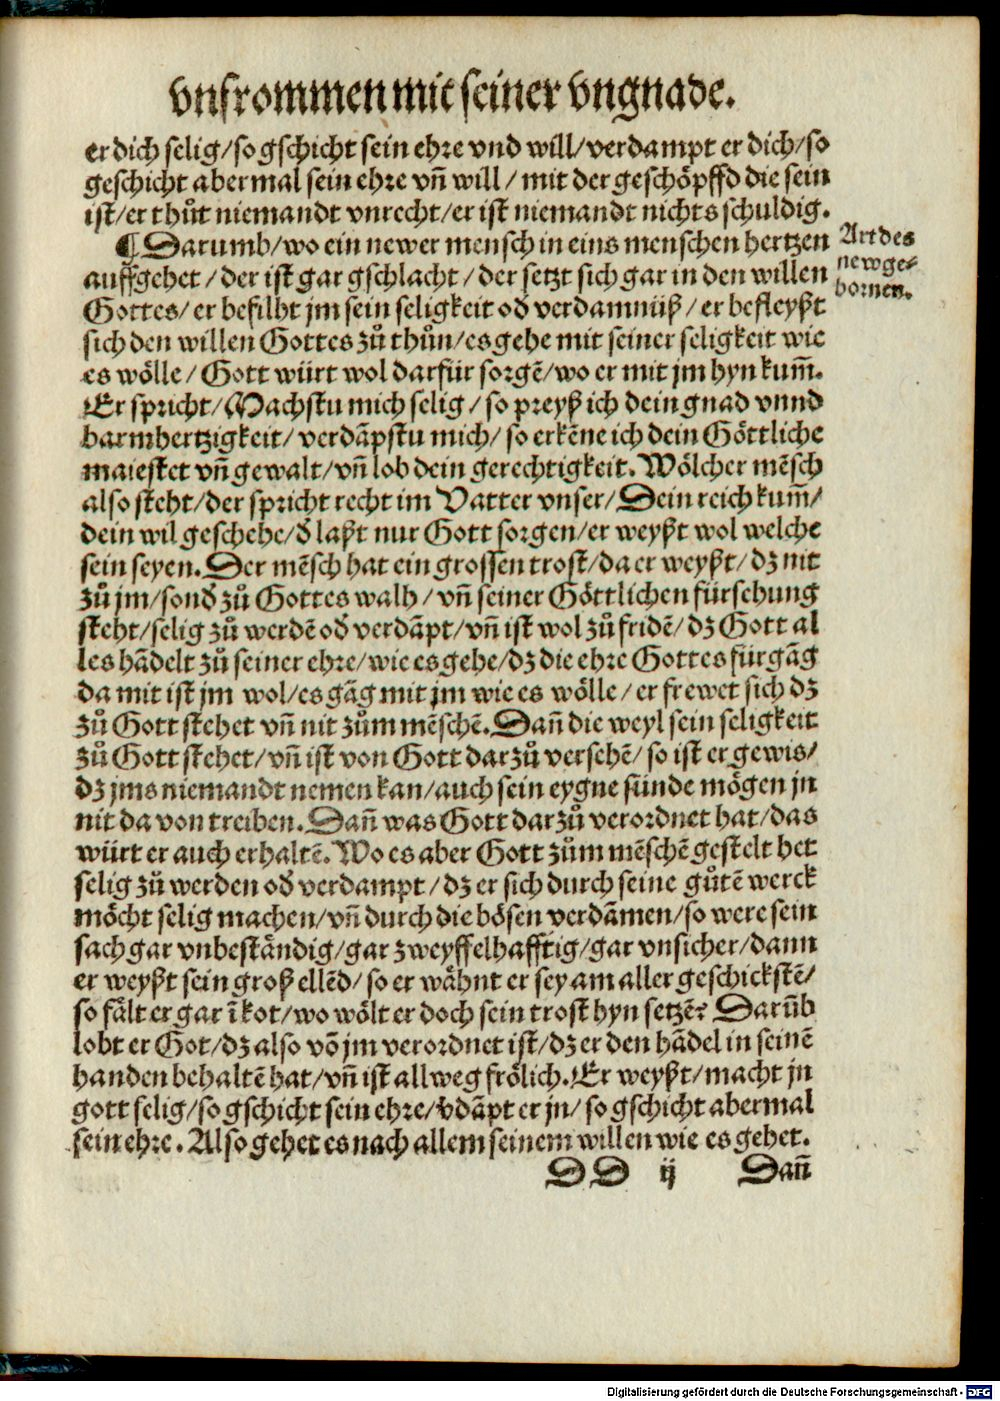 vnfrommen mit seiner vngnade.
er dich selig/so gschicht sein ehre vnd will/verdampt er dich/so
geschicht abermal sein ehre vñ will/mit der geschöpffd die sein
ist/er thůt niemandt vnrecht/er ist niemandt nichts schuldig.
¶ Darumb/wo ein newer mensch in eins menschen hertzen
auffgehet/der ist gar gschlacht/der setzt sich gar in den willen
Gottes/er befilht jm sein seligkeit od verdamnüß/er befleyßt
sich den willen Gottes zů thůn/es gehe mit seiner seligkeit wie
es wölle/Gott würt wol darfür sorgẽ/wo er mit jm hyn kum̃.
Er spricht/Machstu mich selig/so preyß ich dein gnad vnnd
barmhertzigkeit/verdãpstu mich/so erkẽne ich dein Göttliche
maiestet vñ gewalt/vñ lob dein gerechtigkeit. Wölcher mẽsch
also steht/der spricht recht im Vatter vnser/Dein reich kum̃/
dein wil geschehe/d̄ laßt nur Gott sorgen/er weyßt wol welche
sein seyen. Der mẽsch hat ein grossen trost/da er weyßt/dz nit
zů jm/sond̄ zů Gottes walh/vñ seiner Göttlichen fürsehung
steht/selig zů werdẽ od̄ verdãpt/vñ ist wol zů fridẽ/dz Gott al
les hãdelt zů seiner ehre/wie es gehe/dz die ehre Gottes fürgãg
da mit ist jm wol/es gãg mit jm wie es wölle/er frewet sich dz
zů Gott stehet vñ nit zům mẽschẽ. Dañ die weyl sein seligkeit
zů Gott stehet/vñ ist von Gott darzů versehẽ/so ist er gewis/
dz jms niemandt nemen kan/auch sein eygne sünde mögen jn
nit da von treiben. Dañ was Gott darzů verordnet hat/das
würt er auch erhaltẽ. Wo es aber Gott zům mẽschẽ gestelt het
selig zů werden od̄ verdampt/dz er sich durch seine gůtẽ werck
möcht selig machen/vñ durch die bösen verdãmen/so were sein
sach gar vnbeständig/gar zweyffelhafftig/gar vnsicher/dann
er weyßt sein groß ellẽd/so er wähnt er sey am aller geschickstẽ/
so fält er gar ĩ kot/wo wölt er doch sein trost hyn setzẽ? Darũb
lobt er Got/dz also võ jm verordnet ist/dz er den hãdel in seinẽ
handen behaltẽ hat/vñ ist allweg frölich. Er weyßt/macht jn
gott selig/so gschicht sein ehre/v̄dãpt er jn/so gschicht abermal
sein ehre. Also gehet es nach allem seinem willen wie es gehet.
DD ij Dañ
Art des
newge-
bornen.
Digitalisierung gefördert durch die Deutsche Forschungsgemeinschaft - DFG